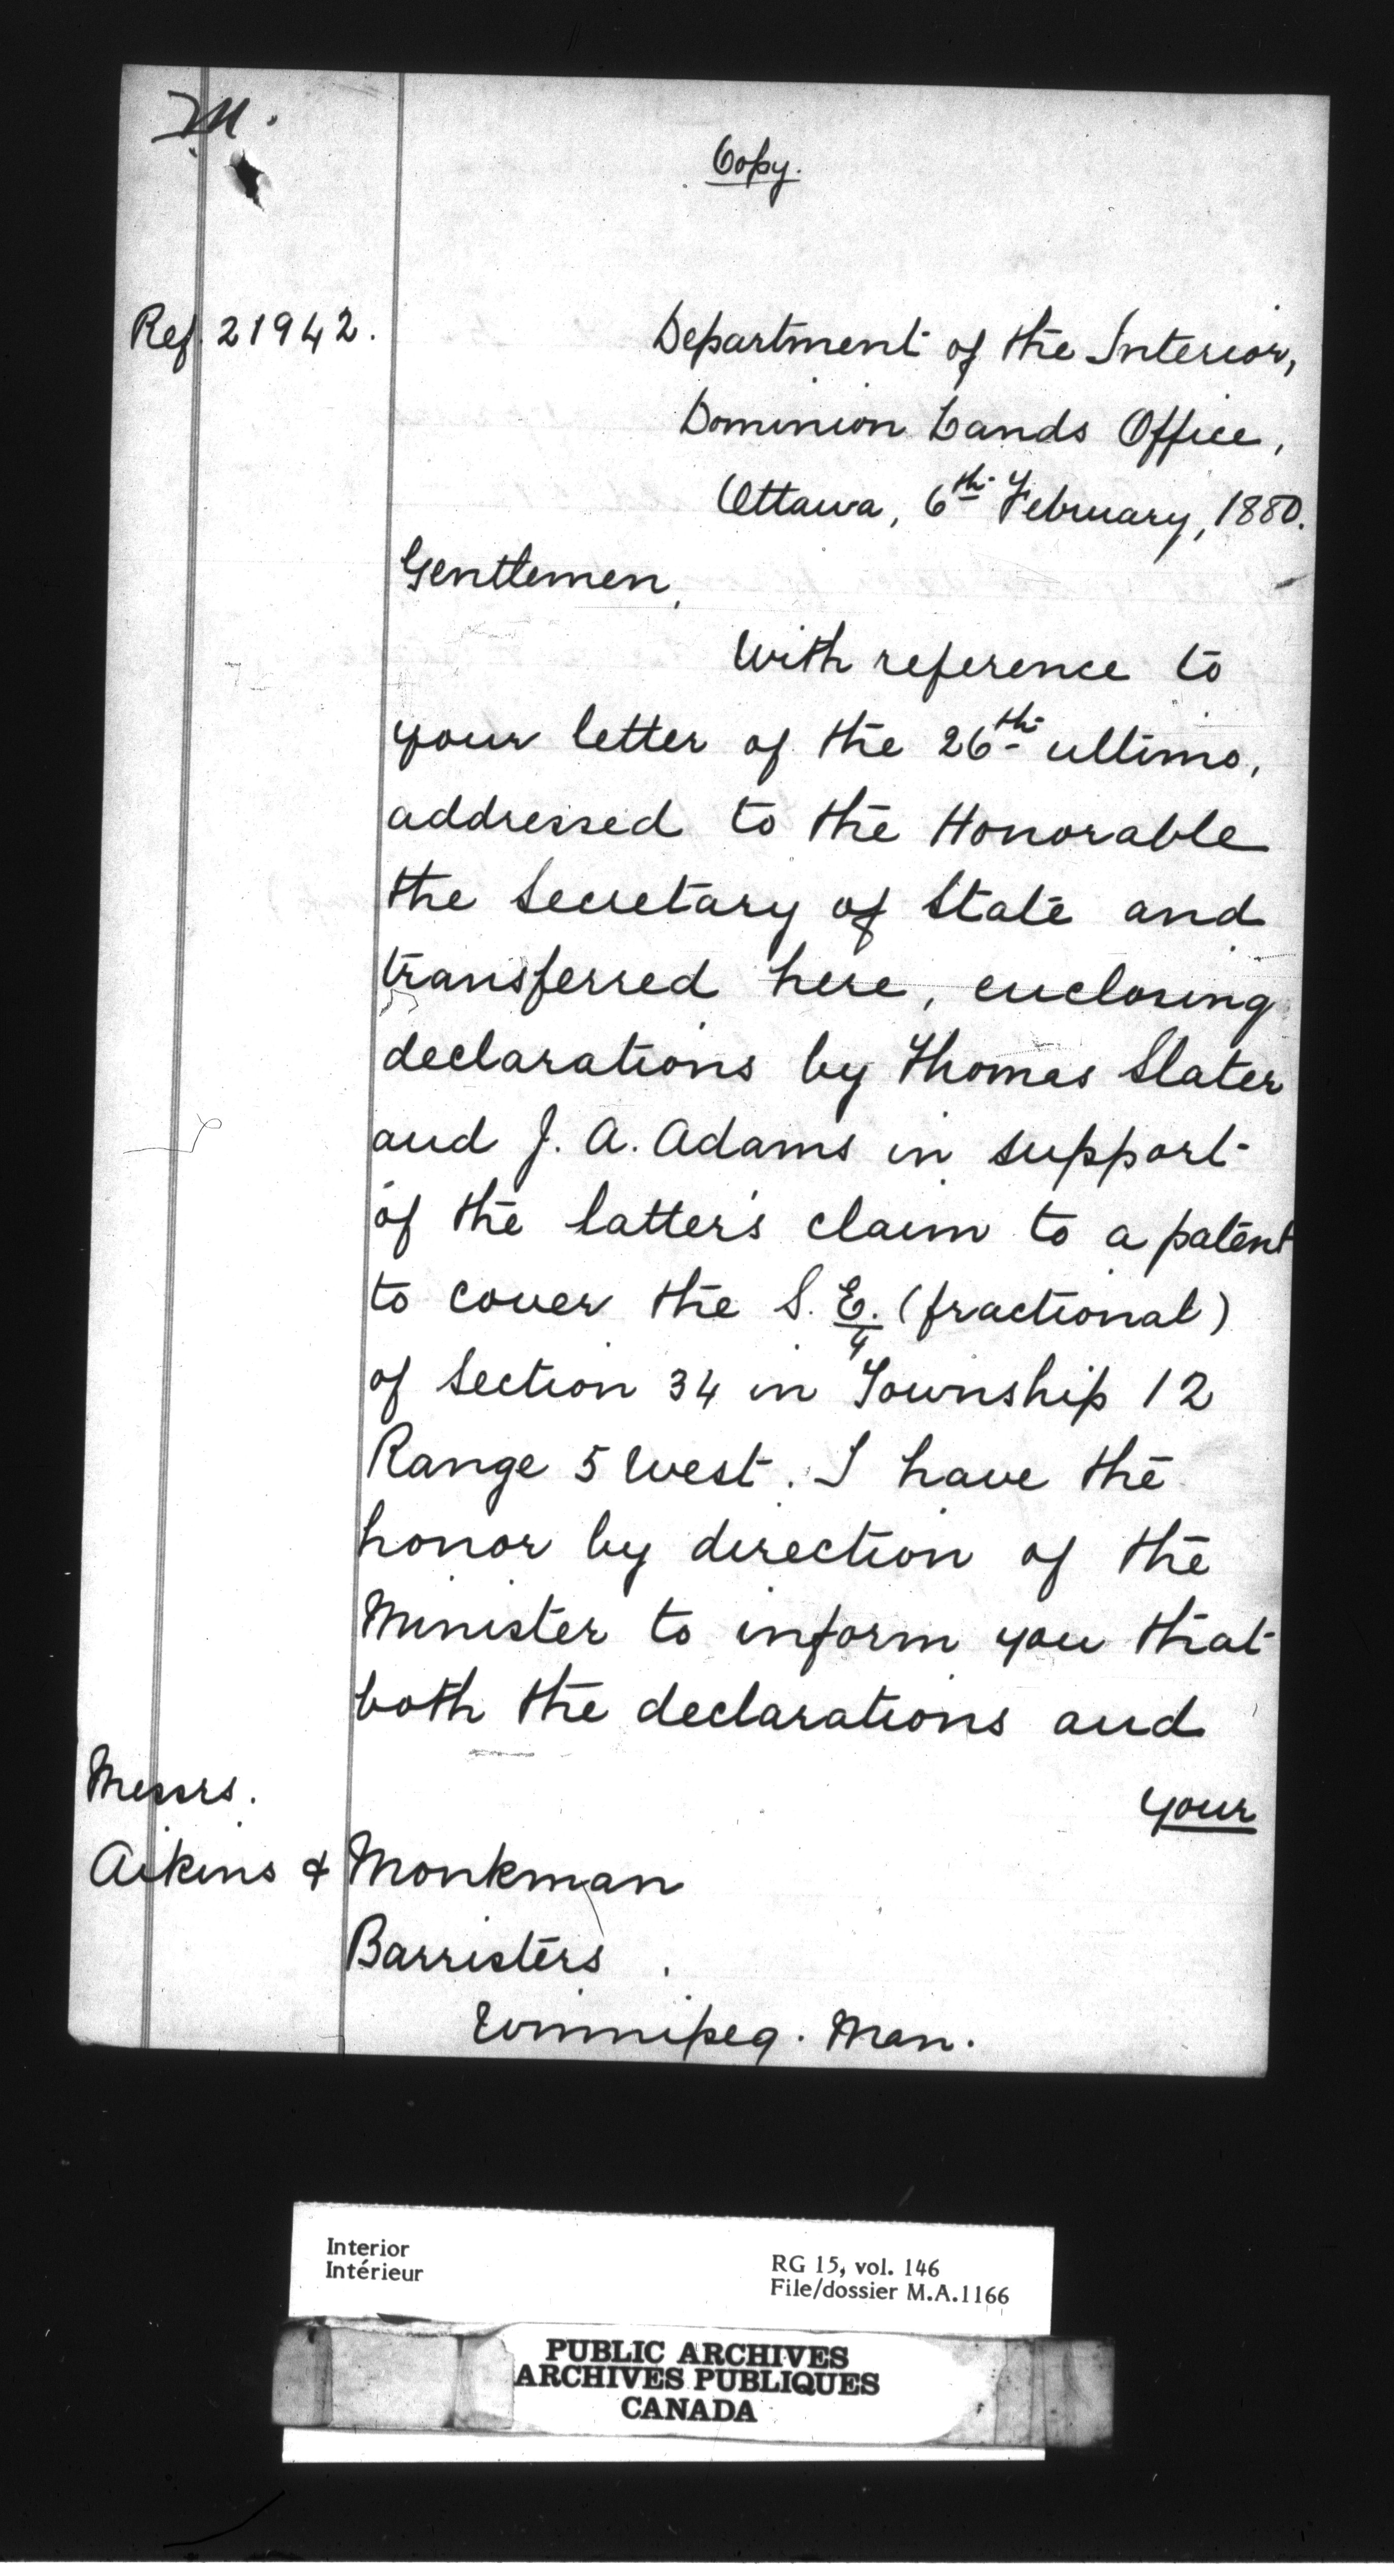 M.
Copy.
Ref. 21942.
Department of the Interior,
Dominion Lands Office,
Ottawa, 6th February, 1880.
Gentlemen,
With reference to
your letter of the 26th ultimo,
addressed to the Honorable
the Secretary of State and
transferred here, enclosing
declarations by Thomas Slater
and J. A. Adams in support
of the latter's claim to a patent
to cover the S. E/4. (fractional)
of Section 34 in Township 12
Range 5 West. I have the
honor by direction of the
Minister to inform you that
both the declarations and
your
Messrs.
Aikins & Monkman
Barristers.
Winnipeg. Man.
Interior
Intérieur
RG 15, vol. 146
File/dossier M.A.1166
PUBLIC ARCHIVES
ARCHIVES PUBLIQUES
CANADA